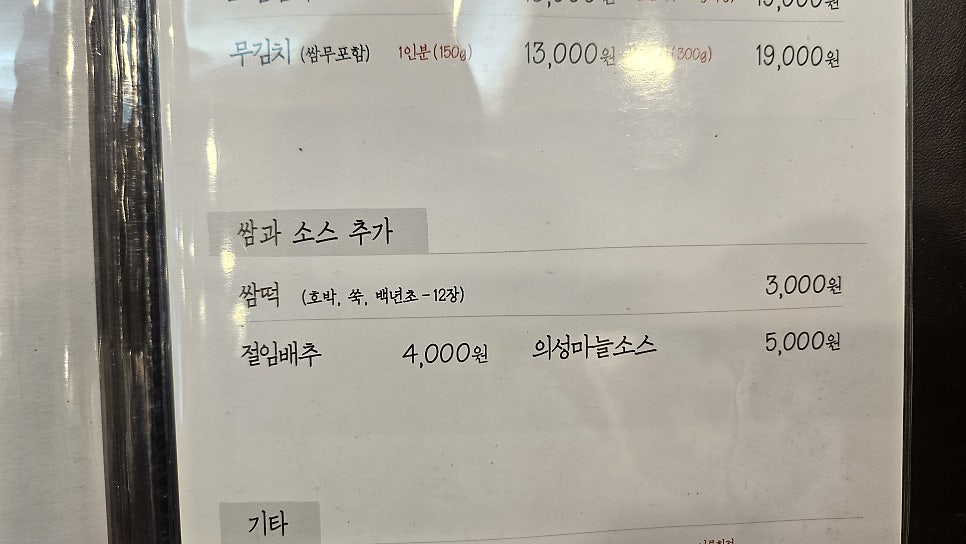 무김치 (쌈무포함) 1인분(150g) 13,000원 (300g) 19,000원
쌈과 소스 추가
쌈떡 (호박, 쑥, 백년초-12장) 3,000원
절임배추 4,000원 의성마늘소스 5,000원
기타